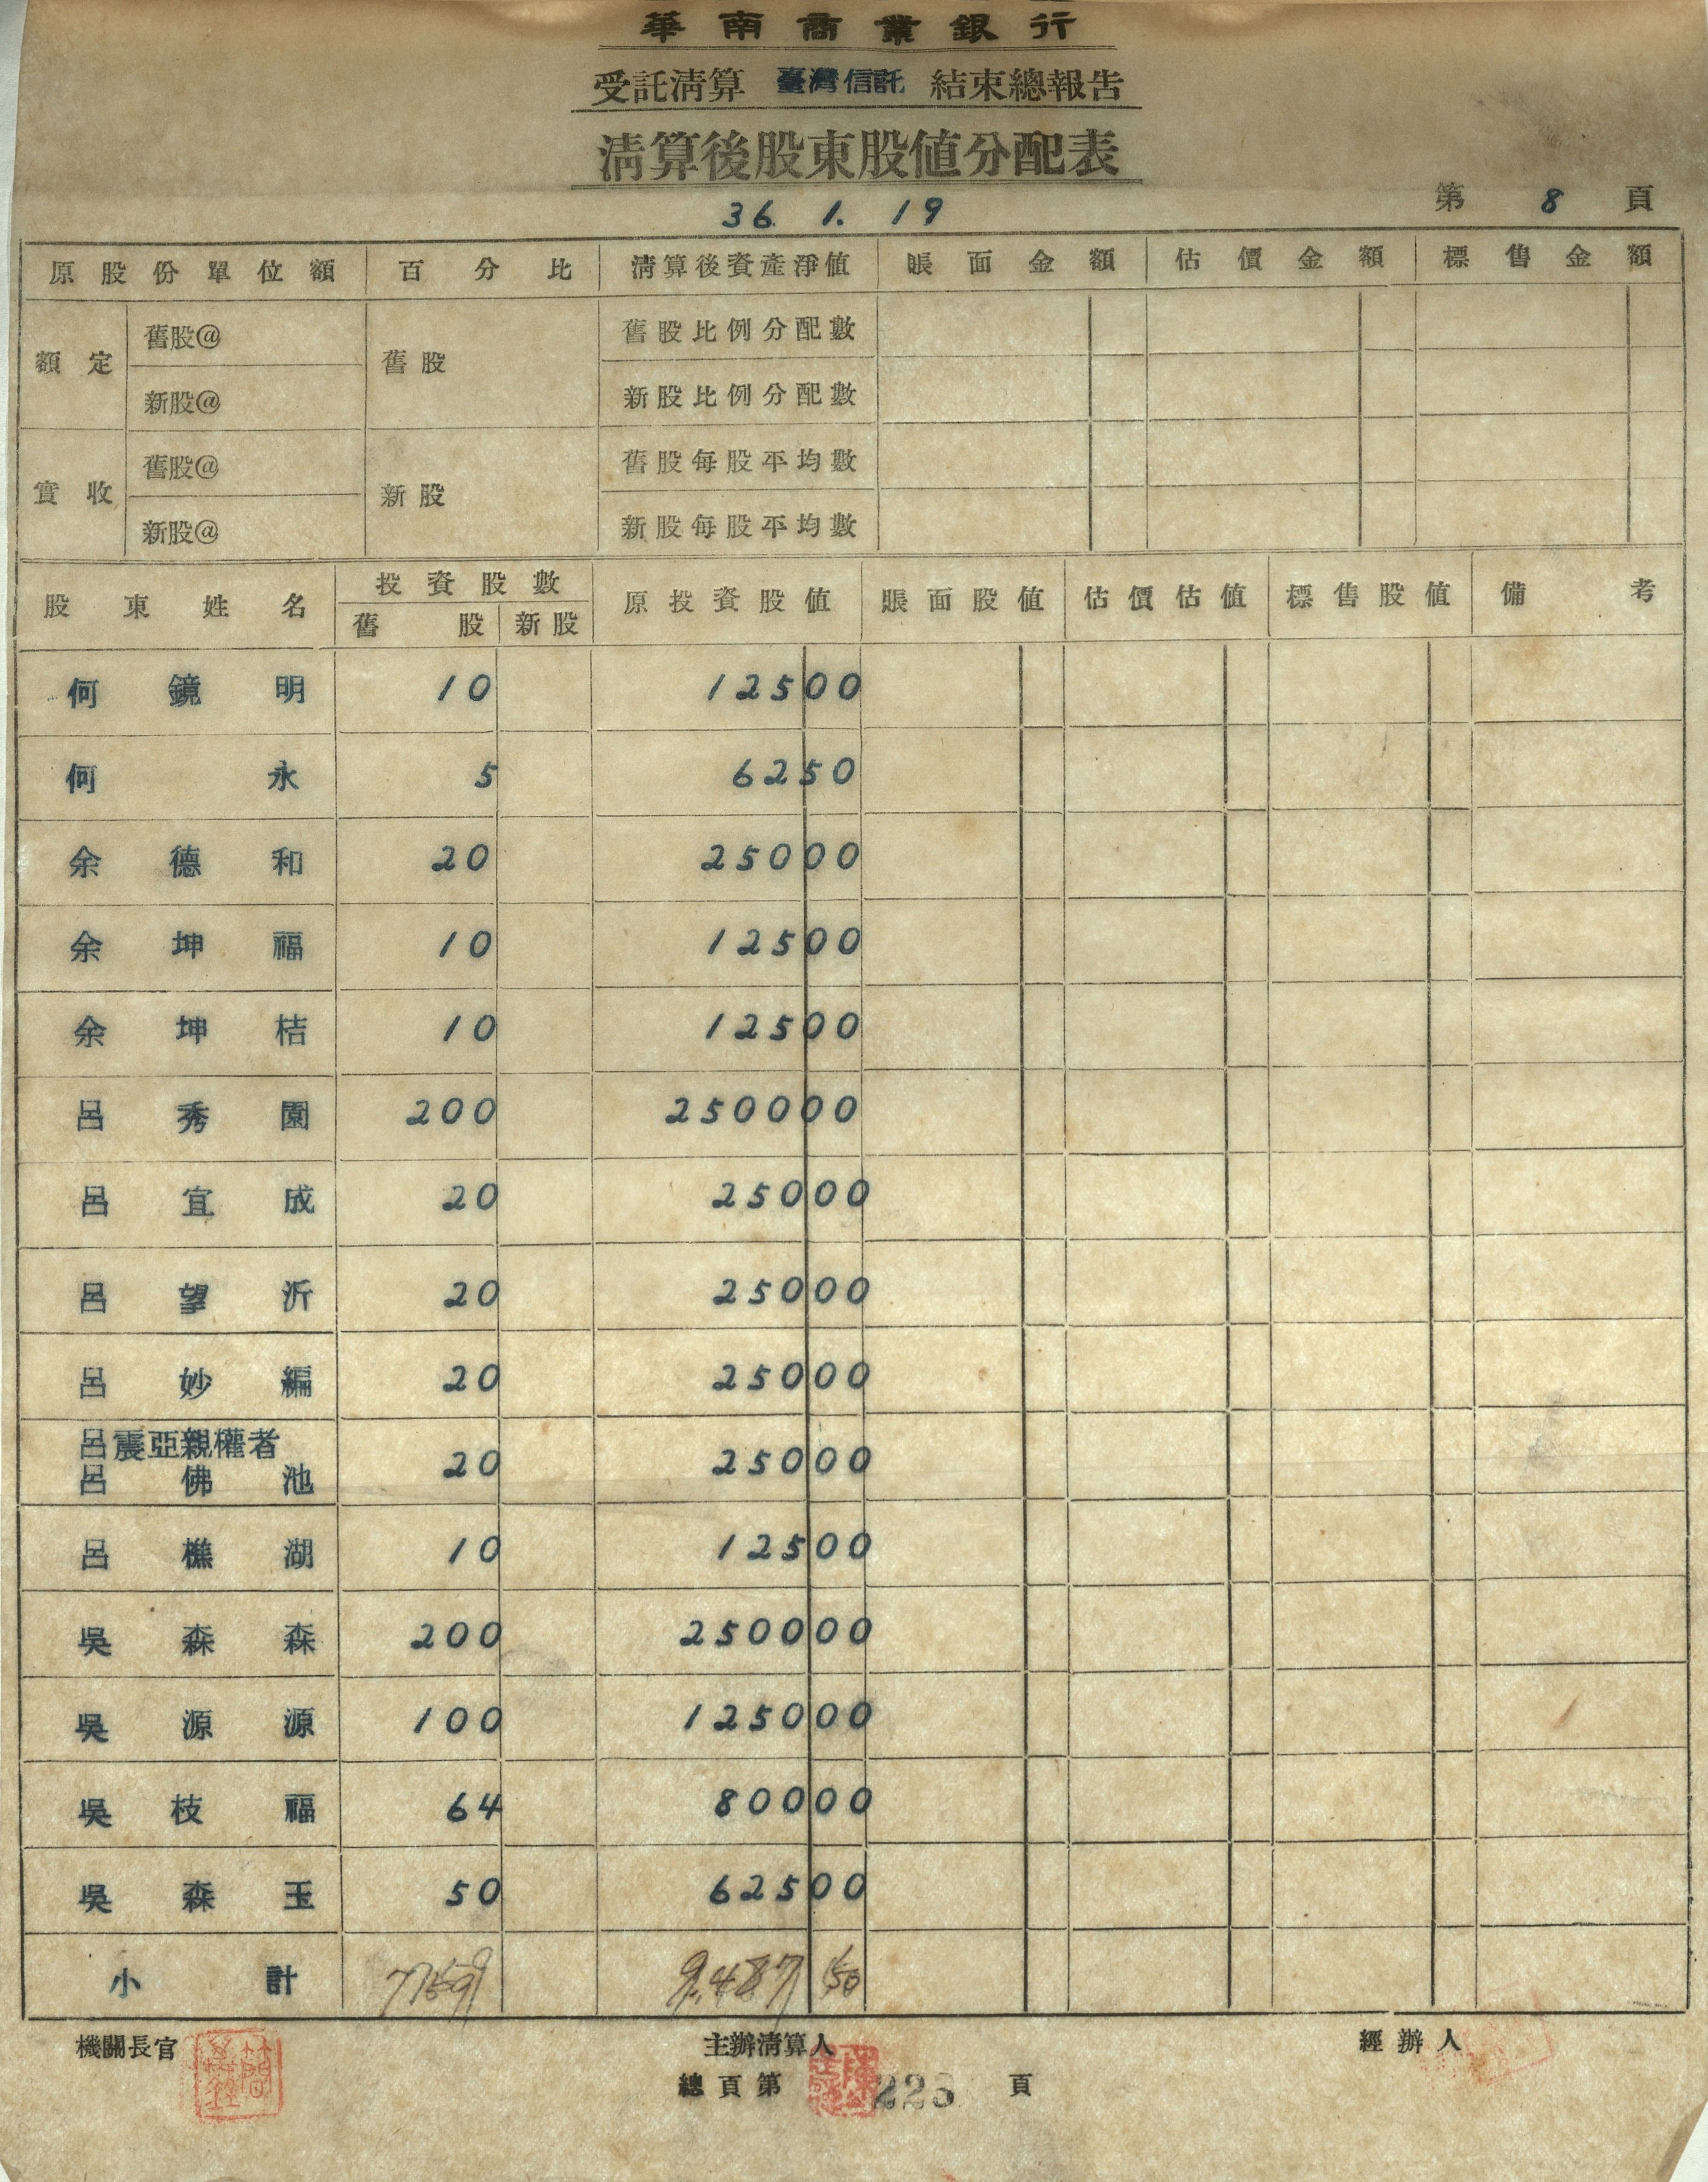 華南商業銀行
受託清算 臺灣信託 結束總報告
清算後股東股值分配表
36. 1. 19
第 8 頁
原股份單位額 百分比 清算後資產淨值 賬面金額 估價金額 標售金額
額定 舊股@ 舊股 舊股比例分配數
新股@ 新股比例分配數
實收 舊股@ 新股 舊股每股平均數
新股@ 新股每股平均數
股東姓名 投資股數 原投資股值 賬面股值 估價估值 標售股值 備考
舊股 新股
何鏡明 10 12500
何永 5 6250
余德和 20 25000
余坤福 10 12500
余坤桔 10 12500
呂秀園 200 250000
呂宜成 20 25000
呂望沂 20 25000
呂妙編 20 25000
呂震亞親權者
呂佛池 20 25000
呂樵湖 10 12500
吳森森 200 250000
吳源源 100 125000
吳枝福 64 80000
吳森玉 50 62500
小計 759 9,487 50
機關長官 主辦清算人 經辦人
總頁第 223 頁